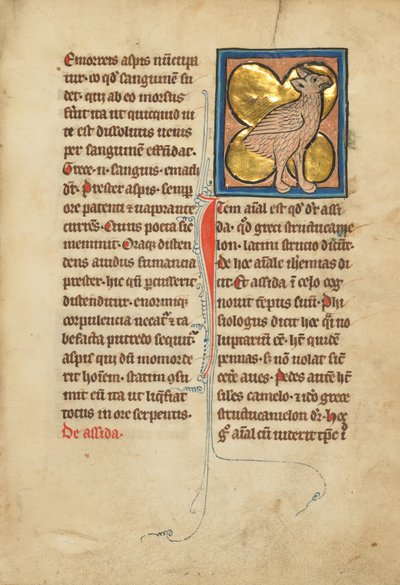 Emorreis aspis nūcupa
tur · eo qď sanguinem su
det · qui ab eo morsus
fuerit ita ut quicquid ui
te est dissolutis uenis
per sanguinem effundat.
Grece · n̄ · sanguis · emath
dr̄. Prester aspis · semp̄
ore patenti & uaporante
currens. Cuius poeta sic
meminit. Oraq; disten
dens auidus fumantia
prester · hic quē percusserit
distenditur · enormiq;
corpulencia necat̄ & ta
befacta putredo sequit̄
aspis qui dum momorde
rit hoīem · statim ɔsu
mit eū ita ut liq̄fiat
totus in ore serpentis.
De assida.
Item aīal est qď dr̄ assi
da · qď greci strutiocame
lon · latini strucio dicūt.
De hoc aīale iheremias di
cit. Et assida ī celo cog
nouit tēpus suū. Phi
siologus dicit hoc uo
eē · hr̄ quidē
pennas · sꝫ non uolat sic̄
cetere aues. Pedes autē hr̄
siles camelo · & ideo grece
strutiocamelon dr̄. Hoc
g̊ aīal cū uiderit tp̄c ī